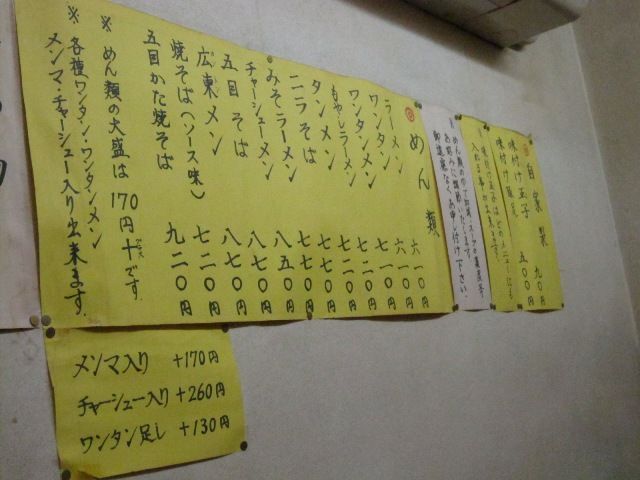 自家製
味付け玉子 九〇円
五〇〇円
味付け玉子はどのメニューにも
入れる事が出来ます。
お好みに調節いたします。
御遠慮なくお申し付け下さい。
めん類
ラーメン 六一〇円
ワンタン 六一〇円
ワンタンメン 七一〇円
もやしラーメン 七二〇円
タンメン 七二〇円
ニラそば 七七〇円
みそラーメン 七七〇円
チャーシューメン 八五〇円
五目そば 八七〇円
広東メン 八七〇円
焼そば(ソース味) 七二〇円
五目かた焼そば 九二〇円
※めん類の大盛は170円プラスです。
※各種ワンタン・ワンタンメン
メンマ・チャーシュー入り出来ます。
メンマ入り +170円
チャーシュー入り +260円
ワンタン足し +130円